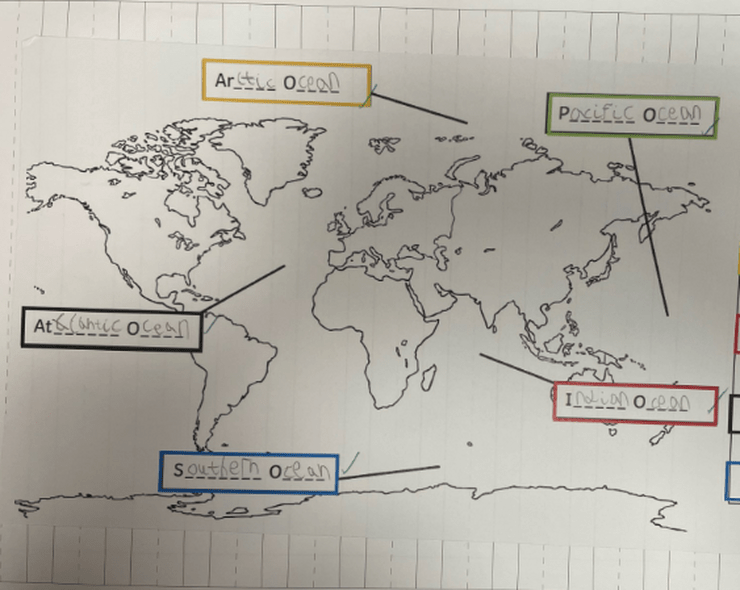 Arctic Ocean
Pacific Ocean
Atlantic Ocean
Indian Ocean
Southern Ocean